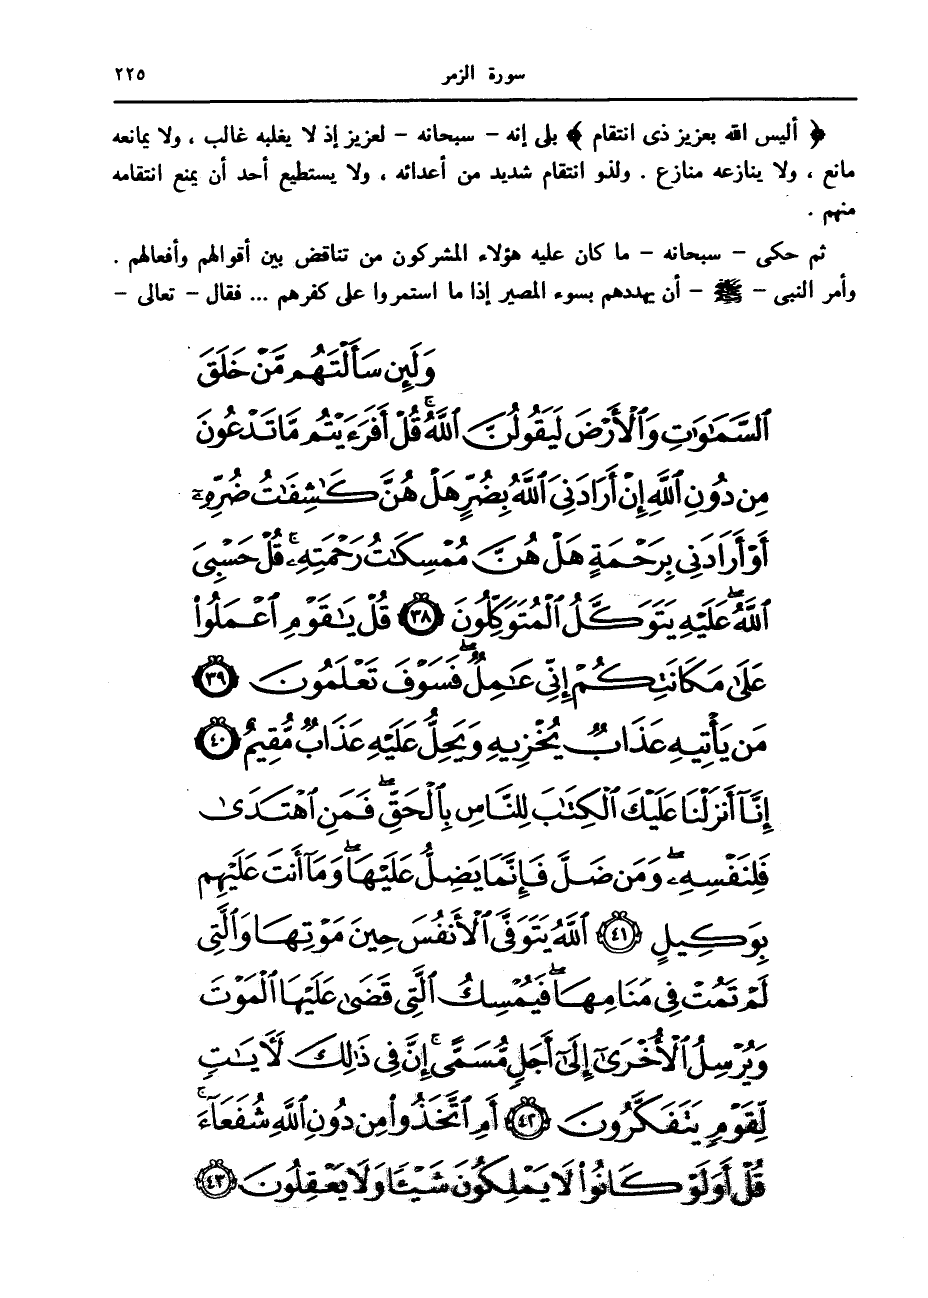 سورة الزمر ٢٢٥
﴿ أليس الله بعزيز ذى انتقام ﴾ بلى إنه – سبحانه – لعزيز إذ لا يغلبه غالب ، ولا يمانعه
مانع ، ولا ينازعه منازع . ولذو انتقام شديد من أعدائه ، ولا يستطيع أحد أن يمنع انتقامه
منهم .
ثم حكى – سبحانه – ما كان عليه هؤلاء المشركون من تناقض بين أقوالهم وأفعالهم .
وأمر النبى – ﷺ – أن يهددهم بسوء المصير إذا ما استمروا على كفرهم ... فقال – تعالى –
وَلَئِن سَأَلْتَهُم مَّنْ خَلَقَ
ٱلسَّمَٰوَٰتِ وَٱلْأَرْضَ لَيَقُولُنَّ ٱللَّهُ ۚ قُلْ أَفَرَءَيْتُم مَّا تَدْعُونَ
مِن دُونِ ٱللَّهِ إِنْ أَرَادَنِىَ ٱللَّهُ بِضُرٍّ هَلْ هُنَّ كَٰشِفَٰتُ ضُرِّهِۦٓ
أَوْ أَرَادَنِى بِرَحْمَةٍ هَلْ هُنَّ مُمْسِكَٰتُ رَحْمَتِهِۦ ۚ قُلْ حَسْبِىَ
ٱللَّهُ ۖ عَلَيْهِ يَتَوَكَّلُ ٱلْمُتَوَكِّلُونَ ٣٨ قُلْ يَٰقَوْمِ ٱعْمَلُوا۟
عَلَىٰ مَكَانَتِكُمْ إِنِّى عَٰمِلٌ ۖ فَسَوْفَ تَعْلَمُونَ ٣٩
مَن يَأْتِيهِ عَذَابٌ يُخْزِيهِ وَيَحِلُّ عَلَيْهِ عَذَابٌ مُّقِيمٌ ٤٠
إِنَّآ أَنزَلْنَا عَلَيْكَ ٱلْكِتَٰبَ لِلنَّاسِ بِٱلْحَقِّ ۖ فَمَنِ ٱهْتَدَىٰ
فَلِنَفْسِهِۦ ۖ وَمَن ضَلَّ فَإِنَّمَا يَضِلُّ عَلَيْهَا ۖ وَمَآ أَنتَ عَلَيْهِم
بِوَكِيلٍ ٤١ ٱللَّهُ يَتَوَفَّى ٱلْأَنفُسَ حِينَ مَوْتِهَا وَٱلَّتِى
لَمْ تَمُتْ فِى مَنَامِهَا ۖ فَيُمْسِكُ ٱلَّتِى قَضَىٰ عَلَيْهَا ٱلْمَوْتَ
وَيُرْسِلُ ٱلْأُخْرَىٰٓ إِلَىٰٓ أَجَلٍ مُّسَمًّى ۚ إِنَّ فِى ذَٰلِكَ لَءَايَٰتٍ
لِّقَوْمٍ يَتَفَكَّرُونَ ٤٢ أَمِ ٱتَّخَذُوا۟ مِن دُونِ ٱللَّهِ شُفَعَآءَ ۚ
قُلْ أَوَلَوْ كَانُوا۟ لَا يَمْلِكُونَ شَيْـًٔا وَلَا يَعْقِلُونَ ٤٣